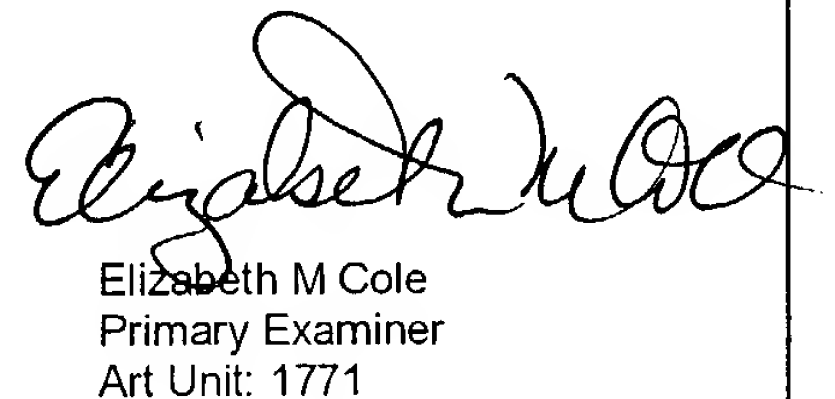 Elizabeth M Cole
Elizabeth M Cole
Primary Examiner
Art Unit: 1771